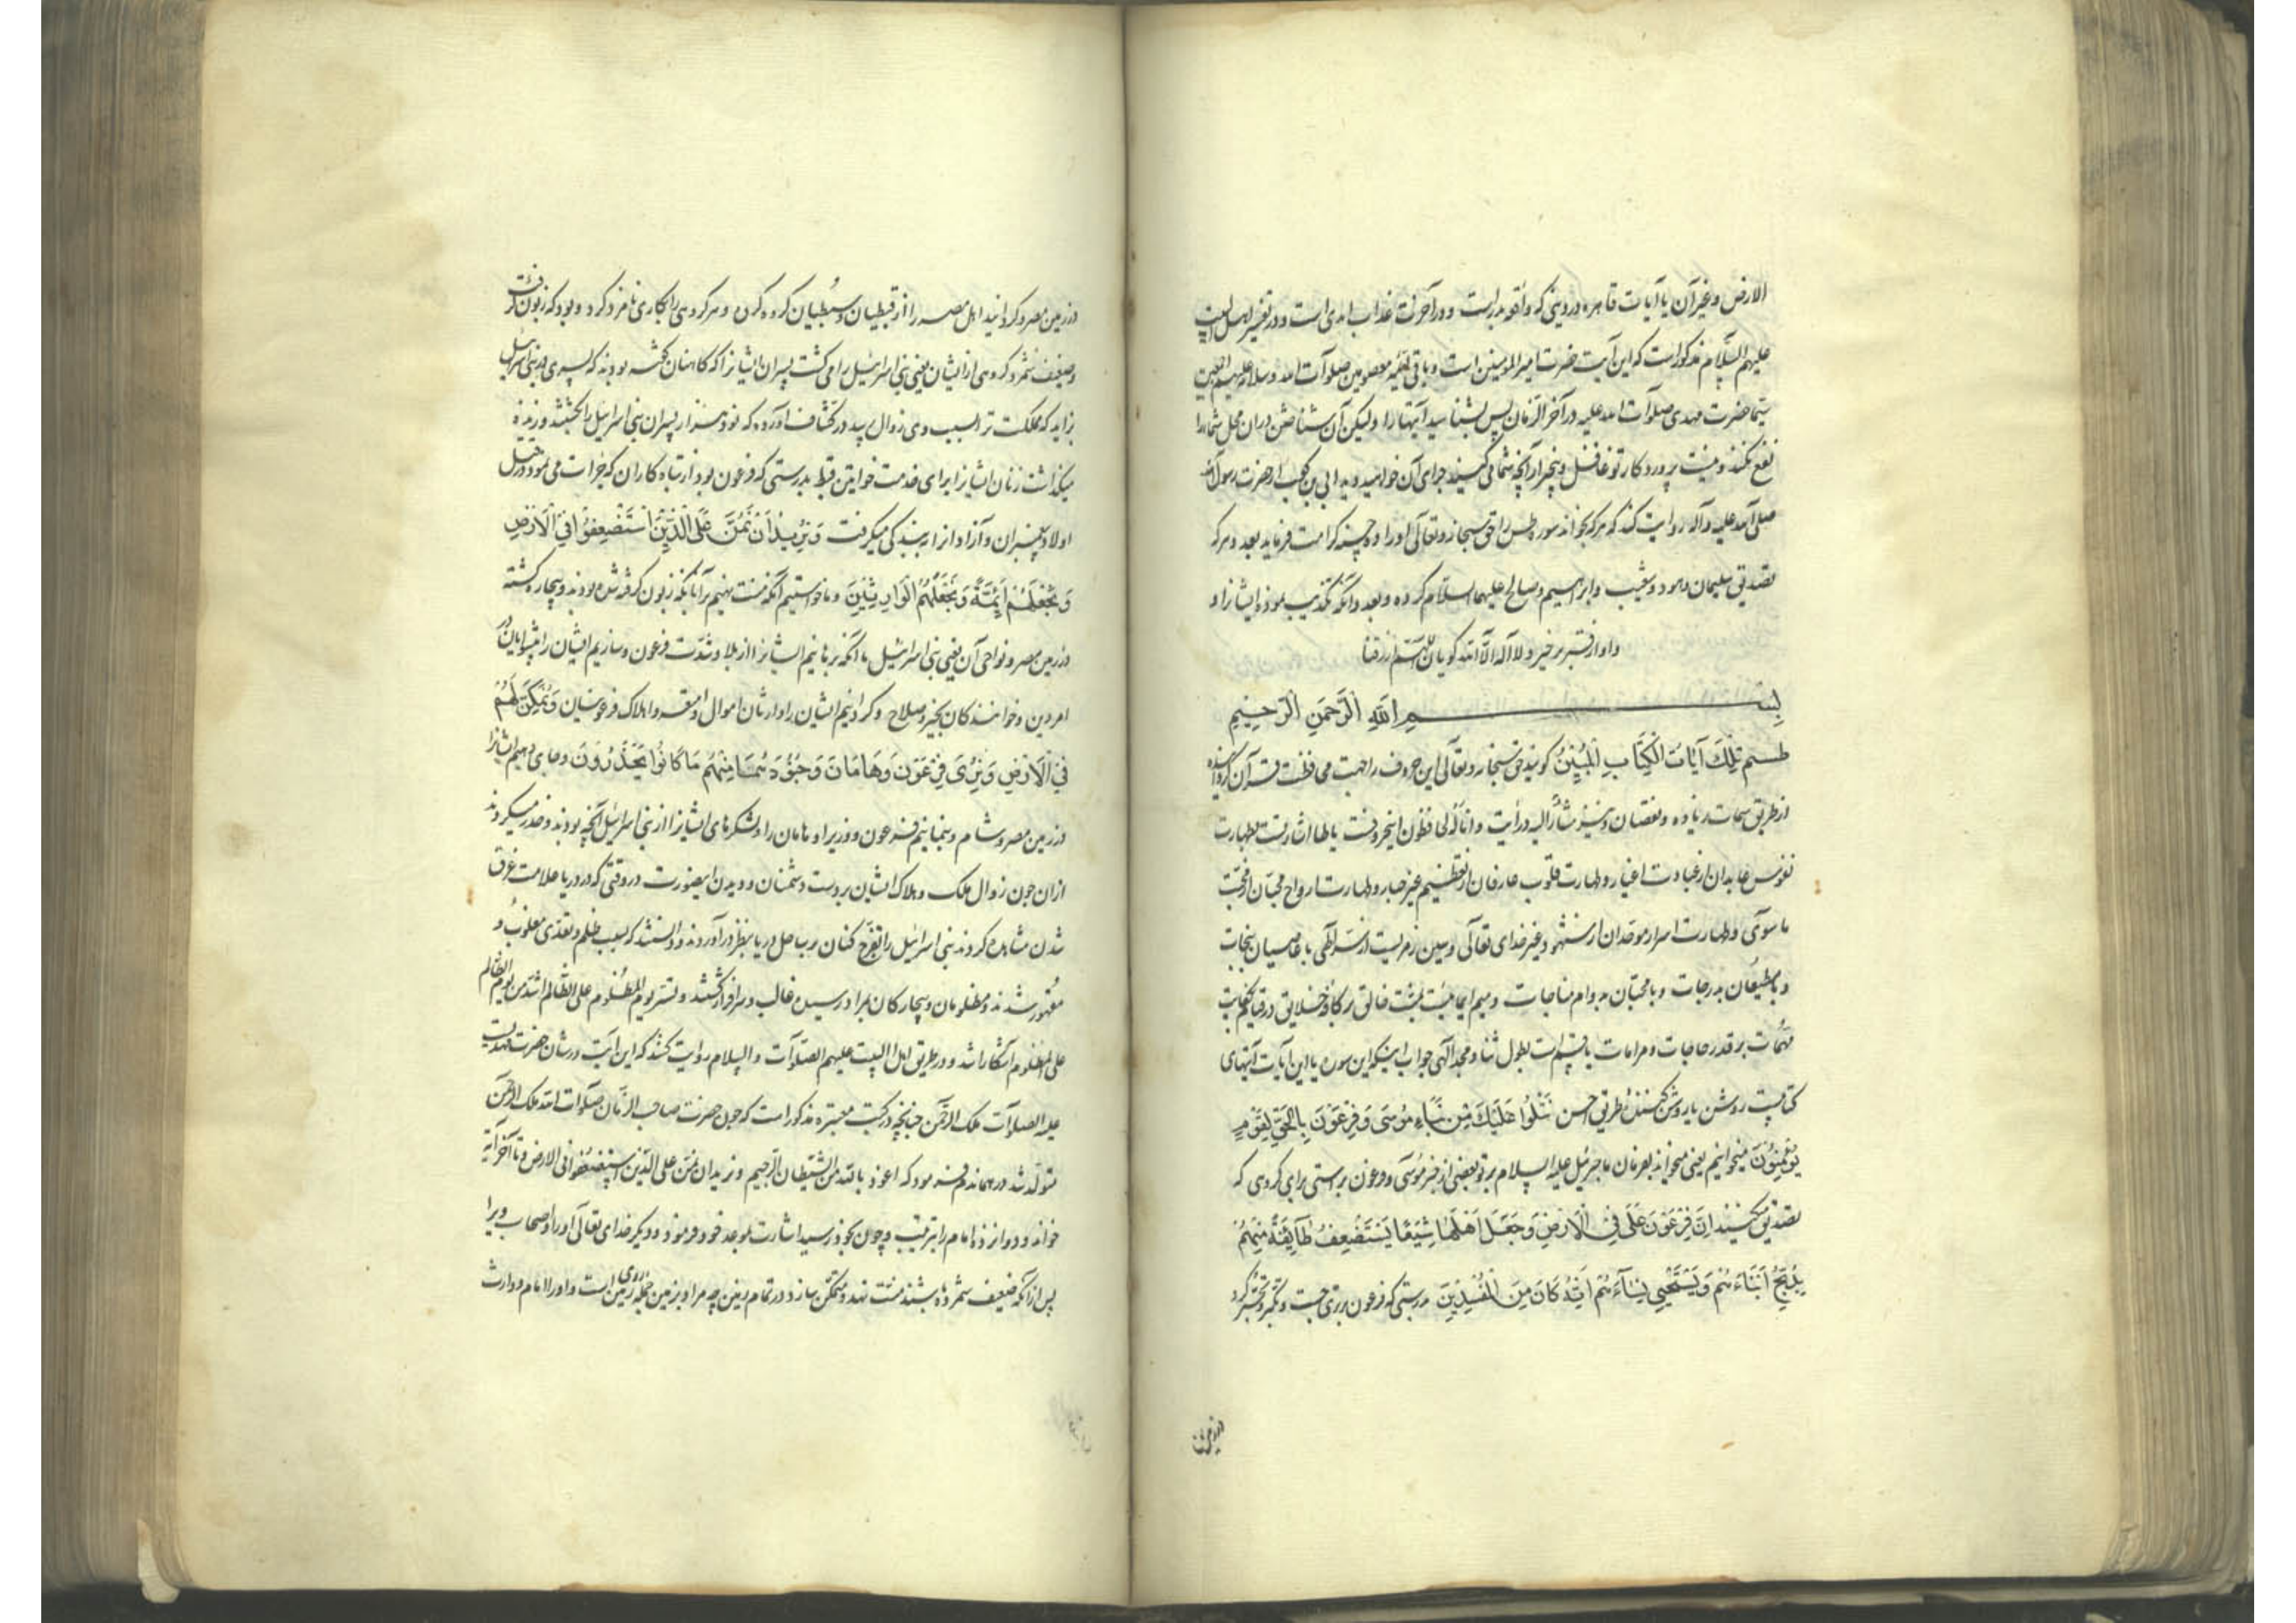 الارض و غیر آن یا آیات قاهره در دینی که واقعه بدر است و در آخرت عذاب ابدی است و در تفسیر اهل البیت
علیهم السّلام مذکور است که این آیت حضرت امیر المومنین است و باقی ائمه معصومین صلوات الله و سلامه علیهم اجمعین
سیّما حضرت مهدی صلوات الله علیه در آخر الزّمان پس بشناسید آیتها را و لیکن آن شناختن در ان محل شما را
نفع نکند و نیست پروردکار تو غافل و بیخبر از آنچه شما می کنید جزای آن خواهید دید ابی بن کعب از حضرت رسول الله
صلی الله علیه و آله روایت کند که هر که بخواند سوره طس را حق سبحانه و تعالی او را ده حسنه کرامت فرماید بعدد هر که
تصدیق سلیمان و هود و شعیب و ابراهیم و صالح علیهم السلام کرده و بعدد آنکه تکذیب نموده ایشانرا و
و او از قبر برخیزد لا اله الّا الله کویان اللهم ارزقنا
بسم الله الرّحمن الرّحیم
طسم تِلْكَ آيَاتُ الْكِتَابِ الْمُبِينِ کویند حق سبحانه و تعالی این حروف را جهت محافظت قرآن کردانیده
از طریق سمات زیاده و نقصان و نیز مشار الیه در آیت و انا له لحافظون اینحروفست یا طا اشارتست بطهارت
نفوس عابدان از عبادت اغیار و طهارت قلوب عارفان از تعظیم غیر جبار و طهارت ارواح محبّان از محبّت
ما سوی و طهارت اسرار موحدان از شهود غیر خدای تعالی و سین رمزیست از سرّ الهی با عاصیان بنجات
و با مطیعان بدرجات و با محبّان بدوام مناجات و میم ایماییست بمنّت خالق بر کافه خلایق در قبایل کفایت
مهمّات بر قدر حاجات و مرامات یا قسم است بطول و ثنا و مجد الهی جواب اینکه این سوره یا این آیات آیتهای
کتابیست روشن یا روشن کننده طریق احسن نَتْلُوا عَلَيْكَ مِنْ نَبَاءِ مُوسَى وَ فِرْعَوْنَ بِالْحَقِّ لِقَوْمٍ
يُؤْمِنُونَ میخوانیم یعنی میخواند بفرمان ما جبرئیل علیه السلام بر تو بعضی از خبر موسی و فرعون براستی برای کروهی که
تصدیق میکنند اِنَّ فِرْعَوْنَ عَلَى فِي الْاَرْضِ وَ جَعَلَ اَهْلَهَا شِيَعًا يَسْتَضْعِفُ طَآئِفَةً مِنْهُمْ
يُذَبِّحُ اَبْنَاءَهُمْ وَ يَسْتَحْيِي نِسَآءَهُمْ اِنَّهُ كَانَ مِنَ الْمُفْسِدِينَ بدرستی که فرعون برتری جست و تکبر و تجبّر کرد
در زمین مصر و کردانید اهل مصر را از قبطیان و سبطیان کروه کروه و هر کروهی را بکاری نامزد کرد و بود که زبون کرفت
و ضعیف شمرد کروهی از ایشان یعنی بنی اسرائیل را می کشت پسران ایشانرا که کاهنان کفته بودند که پسری در بنی اسرائیل
زاید که مملکت ترا بسبب وی زوال پدید در کشاف آورده که نود هزار پسران بنی اسرائیل را بکشتند و زنده
میکذاشت زنان ایشانرا برای خدمت خواتین قبط بدرستی که فرعون بود از تباه کاران که جرات می نمود در قتل
اولاد پیغمبران و آزادانرا ببندکی میکرفت وَ نُرِيدُ اَنْ نَمُنَّ عَلَى الَّذِينَ اسْتُضْعِفُوا فِي الْاَرْضِ
وَ نَجْعَلَهُمْ اَئِمَّةً وَ نَجْعَلَهُمُ الْوَارِثِينَ و ما خواستیم آنکه منت نهیم بر آنانکه زبون کرفته شده بودند و بیچاره کشته
در زمین مصر و نواحی آن یعنی بنی اسرائیل با آنکه برهانیم ایشانرا از بلا و شدّت فرعون و سازیم ایشان را پیشوایان در
امر دین و خوانندکان بخیر و صلاح و کردانیم ایشان را وارثان اموال و امتعه و املاک فرعونیان وَ نُمَكِّنَ لَهُمْ
فِي الْاَرْضِ وَ نُرِيَ فِرْعَوْنَ وَ هَامَانَ وَ جُنُودَهُمَا مِنْهُمْ مَا كَانُوا يَحْذَرُونَ و جای دهیم ایشانرا
در زمین مصر و شام و بنمایانیم فرعون و وزیر او هامان را و لشکرهای ایشانرا از بنی اسرائیل آنچه بودند و حذر میکردند
از ان چون زوال ملک و هلاک ایشان بر دست دشمنان و دیدن اینصورت در وقتی که در دریا علامت غرق
شدن مشاهده کردند بنی اسرائیل را تفرّج کنان بر ساحل دریا بنظر درآوردند و دانستند که بسبب ظلم و تعدّی مغلوب و
مقهور شدند و مظلومان و بیچارکان بمراد رسیده غالب و سرافراز کشتند و تفسیر یوم المظلوم علی الظّالم اشد من یوم الظالم
علی المظلوم آشکارا شد و در طریق اهل البیت علیهم الصّلوات و السلام روایت کنند که این آیت در شان حضرت مهدیست
علیه الصلوات ملک الرّحمن چنانچه در کتب معتبره مذکور است که چون حضرت صاحب الزّمان صلوات الله ملک الرّحمن
متولّد شد در همان دم فرمود که اعوذ بالله من الشّیطان الرّجیم و نرید ان نمنّ علی الّذین استضعفوا فی الارض تا آخر آیة
خواند و دوازده امام را بترتیب و چون بخود رسید اشارت بموعد خود فرمود و دیکر خدای تعالی او را و اصحاب ویرا
پس از آنکه ضعیف شمرده باشند منت نهد و متمکن سازد در تمام زمین چه مراد بزمین جمله روی زمین است و او را امام و وارث